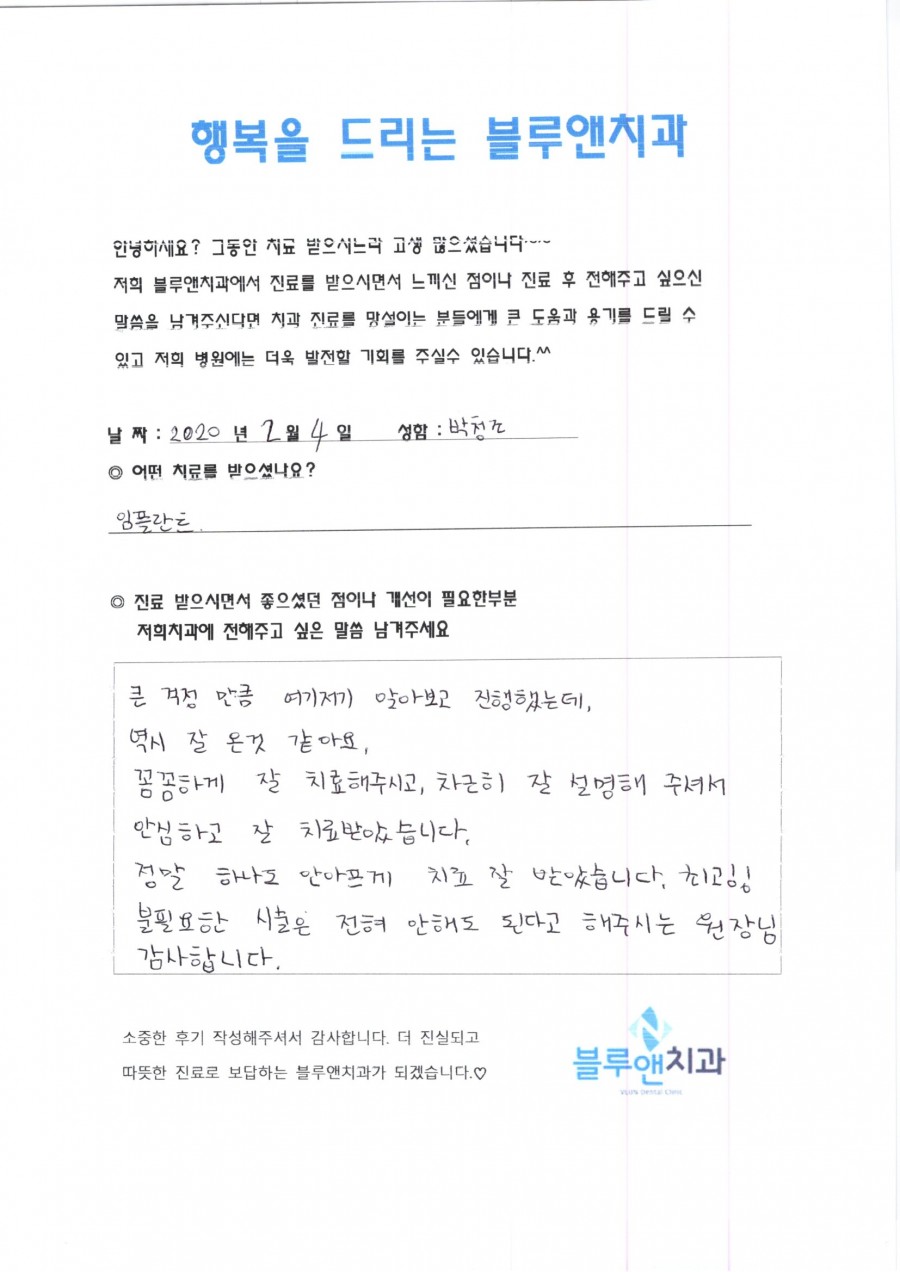 행복을 드리는 블루앤치과
안녕하세요? 그동안 치료 받으시느라 고생 많으셨습니다~~
저희 블루앤치과에서 진료를 받으시면서 느끼신 점이나 진료 후 전해주고 싶으신
말씀을 남겨주신다면 치과 진료를 망설이는 분들에게 큰 도움과 용기를 드릴 수
있고 저희 병원에는 더욱 발전할 기회를 주실수 있습니다.^^
날 짜 : 2020 년 2 월 4 일 성함 :
◎ 어떤 치료를 받으셨나요?
임플란트.
◎ 진료 받으시면서 좋으셨던 점이나 개선이 필요한부분
저희치과에 전해주고 싶은 말씀 남겨주세요
큰 걱정 만큼 여기저기 알아보고 진행했는데,
역시 잘 온것 같아요,
꼼꼼하게 잘 치료해주시고, 차근히 잘 설명해 주셔서
안심하고 잘 치료받았습니다,
정말 하나도 안아프게 치료 잘 받았습니다, 최고!!
불필요한 시술은 전혀 안해도 된다고 해주시는 원장님
감사합니다.
소중한 후기 작성해주셔서 감사합니다. 더 진실되고
따뜻한 진료로 보답하는 블루앤치과가 되겠습니다.♡
블루앤치과